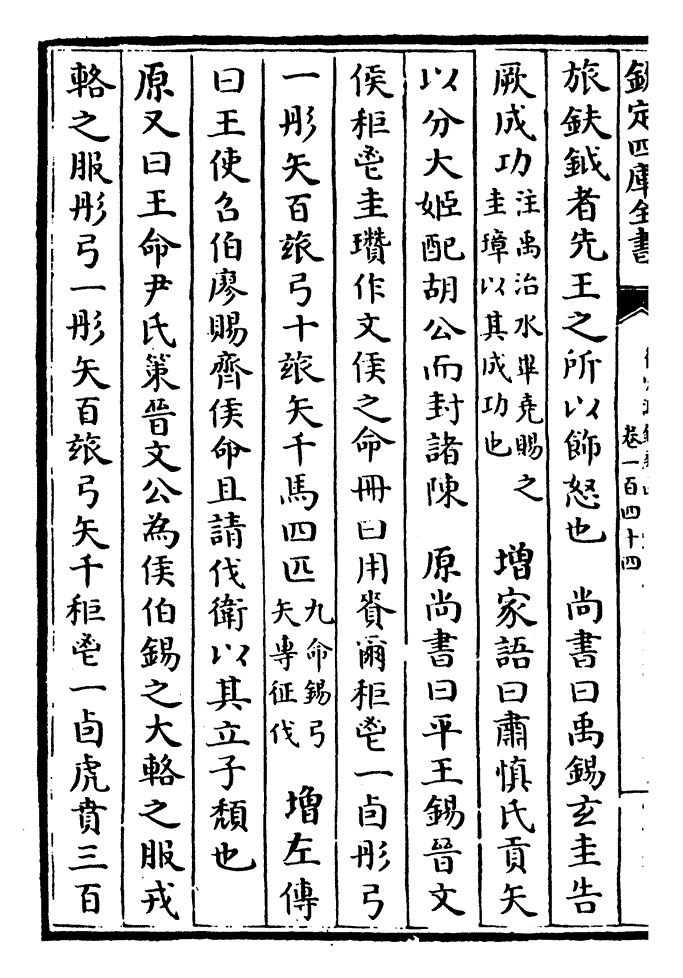 欽定四庫全書
卷一百四十四
旅鈇鉞者先王之所以飾怒也　尚書曰禹錫玄圭告
厥成功注禹治水畢堯賜之圭璋以其成功也　增家語曰肅慎氏貢矢
以分大姬配胡公而封諸陳　原尚書曰平王錫晉文
侯秬鬯圭瓚作文侯之命冊曰用賚爾秬鬯一卣彤弓
一彤矢百玈弓十玈矢千馬四匹九命錫弓矢專征伐　增左傳
曰王使召伯廖賜齊侯命且請伐衛以其立子頹也
原又曰王命尹氏策晉文公為侯伯錫之大輅之服戎
輅之服彤弓一彤矢百玈弓矢千秬鬯一卣虎賁三百